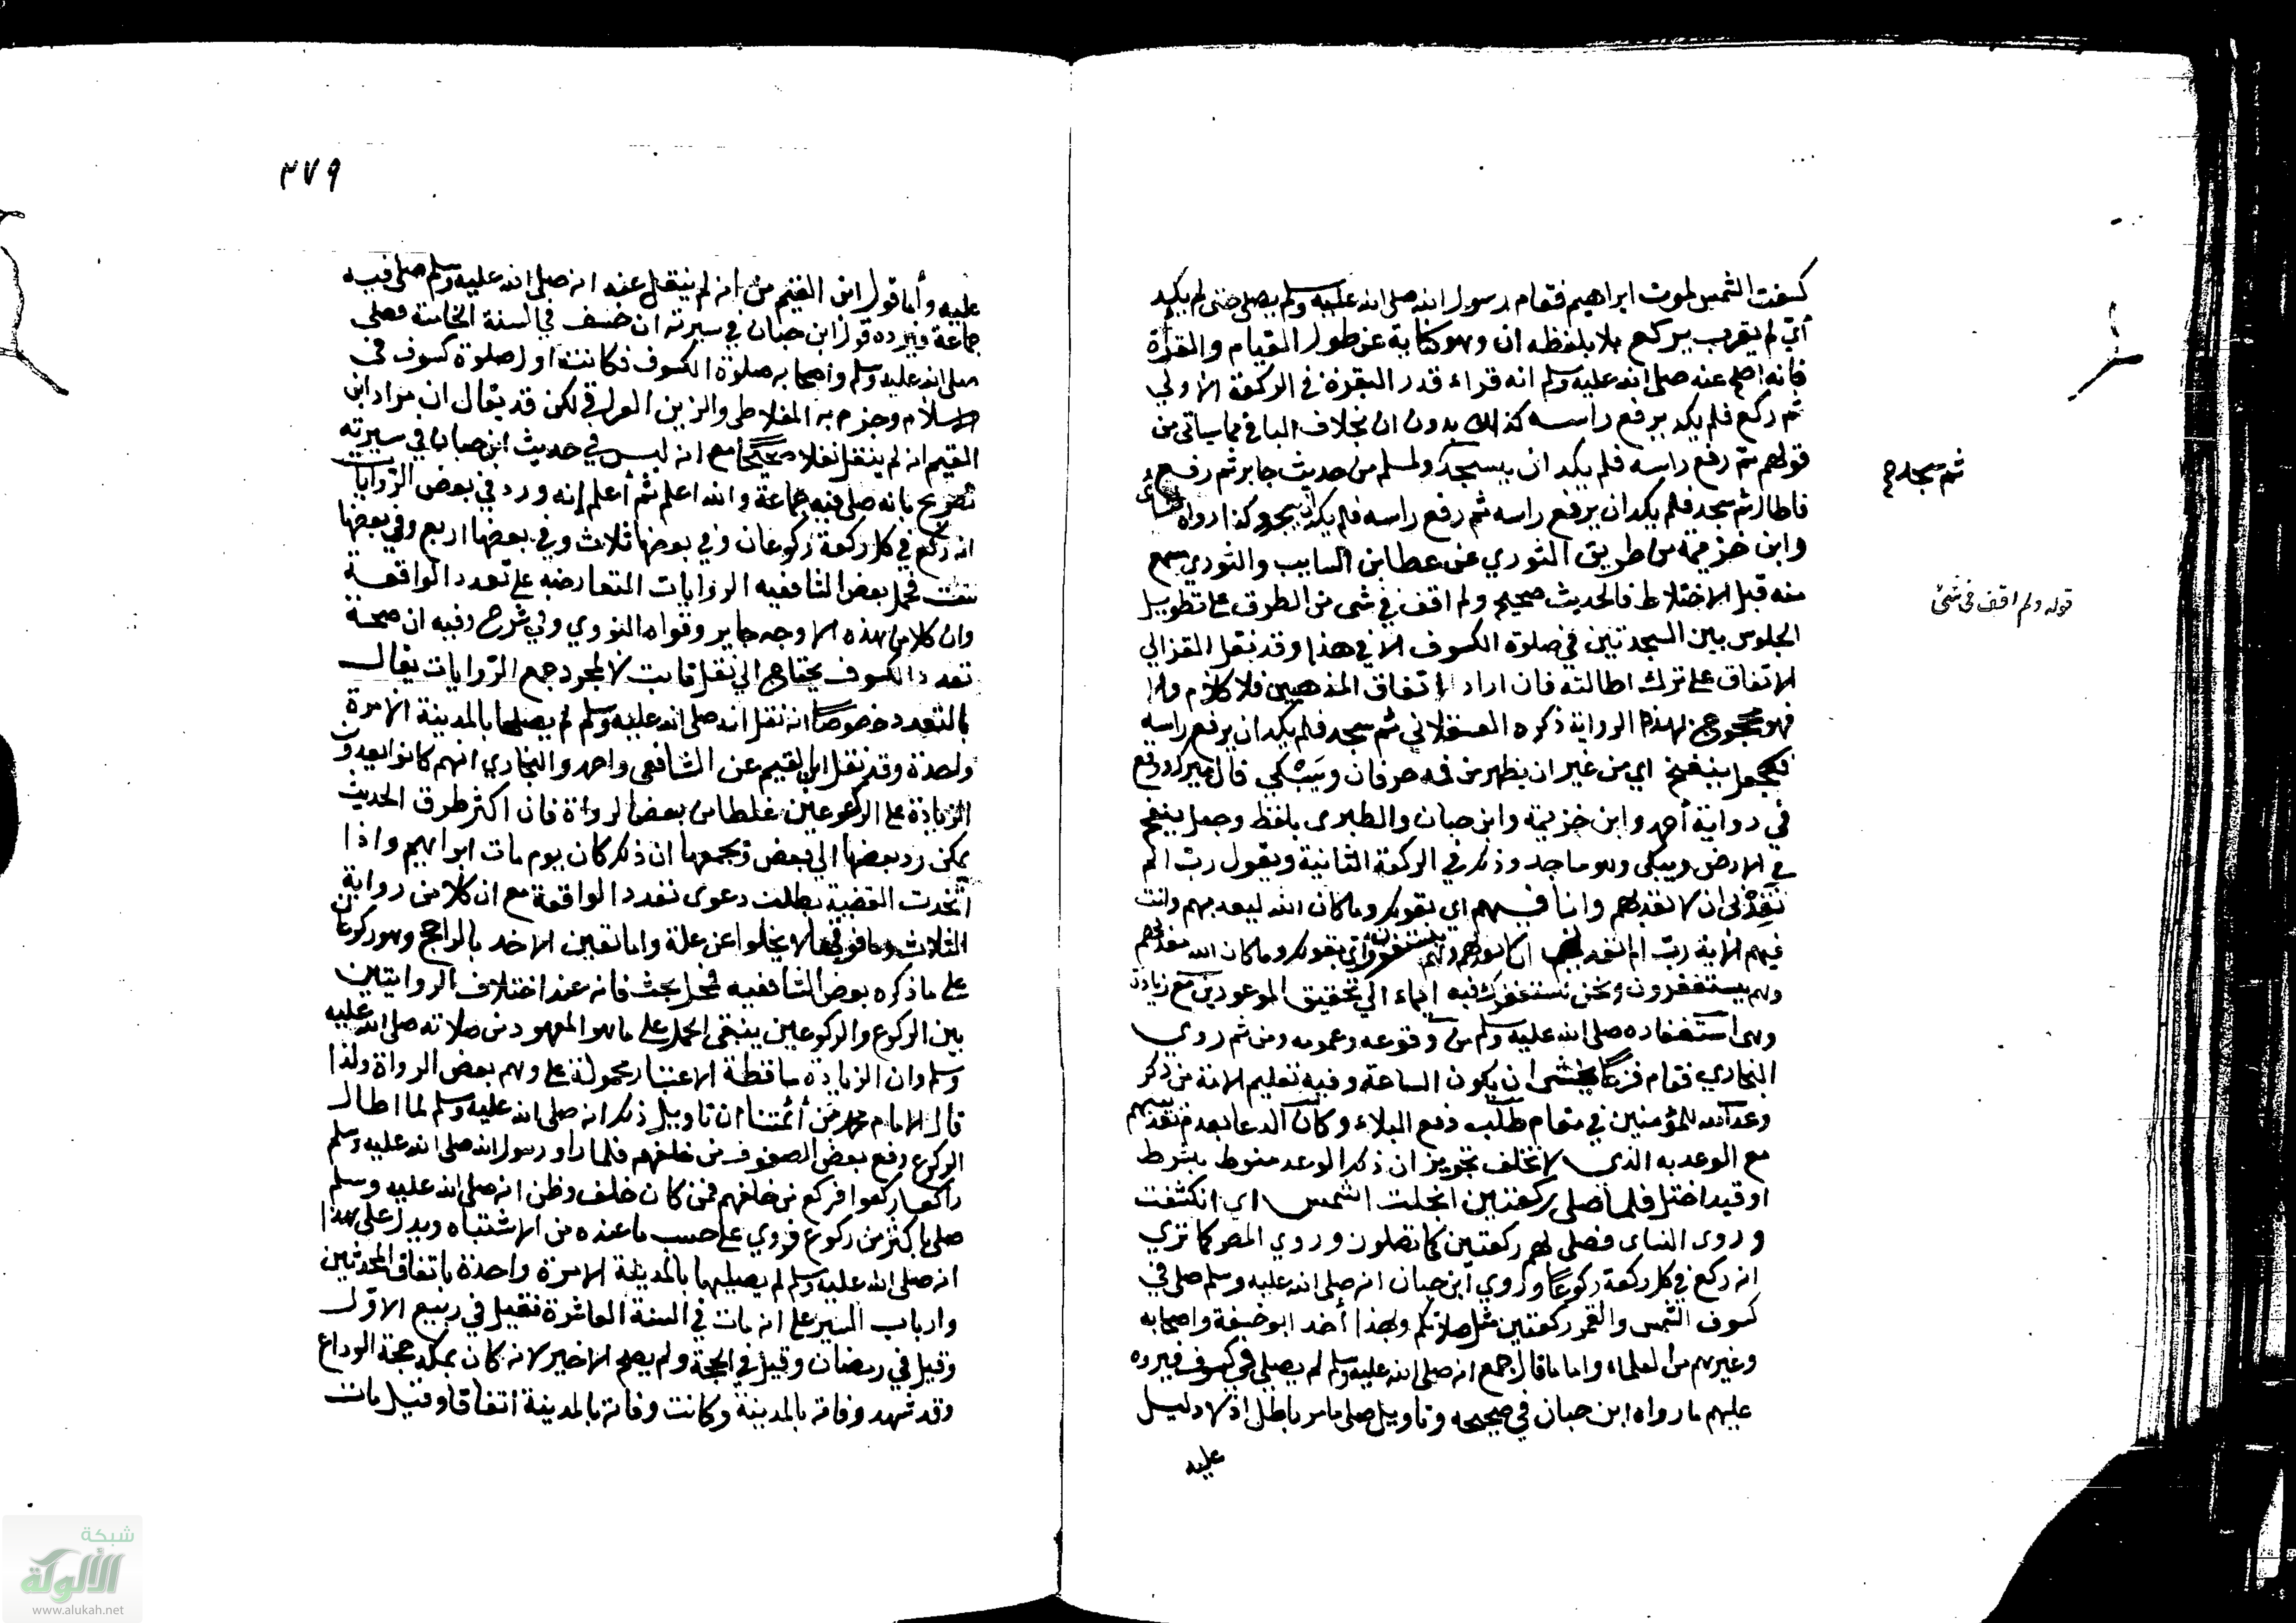 كسفت الشمس لموت ابراهيم فقام رسول الله صلى الله عليه وسلم يصلي حتى لم يكد
أي لم يقرب يركع بلا بلفظه ان وهو كناية عن طول القيام والقراة
فانه صلى عنه صلى الله عليه وسلم انه قراء قدر البقرة في الركعة الاولى
ثم ركع فلم يكد يرفع راسه كذلك بدون ان بخلاف الباقي مما سياتي من
قولهم ثم رفع راسه فلم يكد ان يسجد ولمسلم من حديث جابر ثم رفع
فاطال ثم سجد فلم يكد ان يرفع راسه ثم رفع راسه فلم يكد ان يسجد وكذا رواه النسائى
وابن خزيمة من طريق الثوري عن عطا ابن السايب والثوري سمع
منه قبل الاختلاط فالحديث صحيح ولم اقف في شى من الطرق على تطويل
الجلوس بين السجدتين في صلوة الكسوف الا في هذا وقد نقل الغزالي
الاتفاق على ترك اطالته فان اراد الاتفاق المذهبين فلا كلام والا
فهو محجوج بهذه الرواية ذكره العسقلاني ثم سجد فلم يكد ان يرفع راسه
فجعل ينفخ اي من غير ان يظهر من فمه حرفان ويبكي قال ميرك ووقع
في رواية أحمد وابن خزيمة وابن حبان والطبرى بلفظ وجعل ينفخ
في الارض ويبكي وهو ساجد وذلك في الركعة الثانية ويقول رب الم
تعدني ان لا تعذبهم وانا فيهم اي بقولك وما كان الله ليعذبهم وانت
فيهم الاية رب الم تعدني ان لا تعذبهم وهم يستغفرون أي بقولك وما كان الله معذبهم
وهم يستغفرون ونحن نستغفرك فيه ايماء الى تحقيق الموعودين مع زيادة
وهى استغفاره صلى الله عليه وسلم من وقوعه وعمومه ومن ثم روي
البخاري فقام فزعا يخشى ان يكون الساعة وفيه تعليم الامة من ذكر
وعد الله للمؤمنين في مقام طلبه دفع البلاء وكان الدعا بعدم تعذيبهم
مع الوعد به الذي لا يخلف تجويز ان ذلك الوعد منوط بشرط
او قيد اختل فلما صلى ركعتين انجلت الشمس اي انكشفت
وروى النساى فصلى لهم ركعتين كما تصلون وروي المص كما ترى
انه ركع في كل ركعة ركوعا وروي ابن حبان انه صلى الله عليه وسلم صلى في
كسوف الشمس والقمر ركعتين مثل صلاتكم وبهذا أخذ ابو حنيفة واصحابه
وغيرهم من العلماء واما ما قال جمع انه صلى الله عليه وسلم لم يصلي في كسوف فيرده
عليهم ما رواه ابن حبان في صحيحه وتاويل صلى مامر باطل اذ لا دليل
عليه
ثم سجد صح
قوله ولم اقف في شئ
٣٧٩
عليه وأما قول ابن القيم من انه لم ينقل عنه انه صلى الله عليه وسلم صلى فيه
جماعة فيرده قول ابن حبان في سيرته ان خسف في السنة الخامسة فصلى
صلى الله عليه وسلم واصحابه صلوة الكسوف فكانت اول صلوة كسوف في
الاسلام وجزم به المغلاطي والزين العراقي لكن قد يقال ان مراد ابن
القيم انه لم ينقل نقلا صحيحا مع انه ليس في حديث ابن حبان في سيرته
تصريح بانه صلى فيه جماعة والله اعلم ثم أعلم انه ورد في بعض الروايات
انه ركع في كل ركعة ركوعان وفي بعضها ثلاث وفي بعضها اربع وفي بعضها
ست فحمل بعض الشافعيه الروايات المتعارضه على تعدد الواقعة
وان كلا من هذه الاوجه جايز وقواه النووي وفي شرح وفيه ان صحة
تعدد الكسوف يحتاج الى نقل ثابت لا لمجرد جمع الروايات يقال
بالتعدد خصوصا انه نقل انه صلى الله عليه وسلم لم يصلها بالمدينة الا مرة
واحدة وقد نقل ابن القيم عن الشافعى واحمد والبخاري انهم كانوا يعدون
الزيادة على الركوعين غلطا من بعض الرواة فان اكثر طرق الحديث
يمكن رد بعضها الى بعض وتجمعها ان ذلك كان يوم مات ابراهيم واذا
اتحدت القضية بطلت دعوى تعدد الواقعة مع ان كلا من رواية
الثلاث وما فوقها لا يخلوا عن علة واما تعين الاخذ بالراجح وهو ركوعان
على ما ذكره بعض الشافعيه فمحل بحث فانه عند اختلاف الروايتين
بين الركوع والركوعين ينبغى الحمل على ما هو المعهود من صلاته صلى الله عليه
وسلم وان الزيادة ساقطة الاعتبار محمولة على وهم بعض الرواة ولذا
قال الامام محمد من أئمتنا ان تاويل ذلك انه صلى الله عليه وسلم لما اطال
الركوع رفع بعض الصفوف من خلفهم فلما راو رسول الله صلى الله عليه وسلم
راكعا ركعوا فركع من خلفهم فمن كان خلف وظن انه صلى الله عليه وسلم
صلى باكثر من ركوع فروي على حسب ما عنده من الاشتباه ويدل على هذا
انه صلى الله عليه وسلم لم يصليها بالمدينة الا مرة واحدة باتفاق المحدثين
وارباب السير على انه مات في السنة العاشرة فقيل في ربيع الاول
وقيل في رمضان وقيل في الحجة ولم يصح الاخير لانه كان بمكة حجة الوداع
وقد شهد وفاته بالمدينة وكانت وفاته بالمدينة اتفاقا وقيل مات
شبكة
الألوكة
www.alukah.net